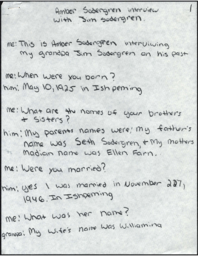 1
Amber Sodergren interview
with Jim Sodergren.
me: This is Amber Sodergren interviewing
my grandpa Jim Sodergren on his past
me: When were you born?
him: May 10, 1925 in Ishpeming
me: What are the names of your brothers
+ sisters?
him: My parents names were; my father's
name was Seth Sodergren, + my mothers
madian name was Ellen Farn.
me: Were you married?
him: yes I was married in November
1946. In Ishpeming
me: What was her name?
grandpa: My wife's name was Williamina